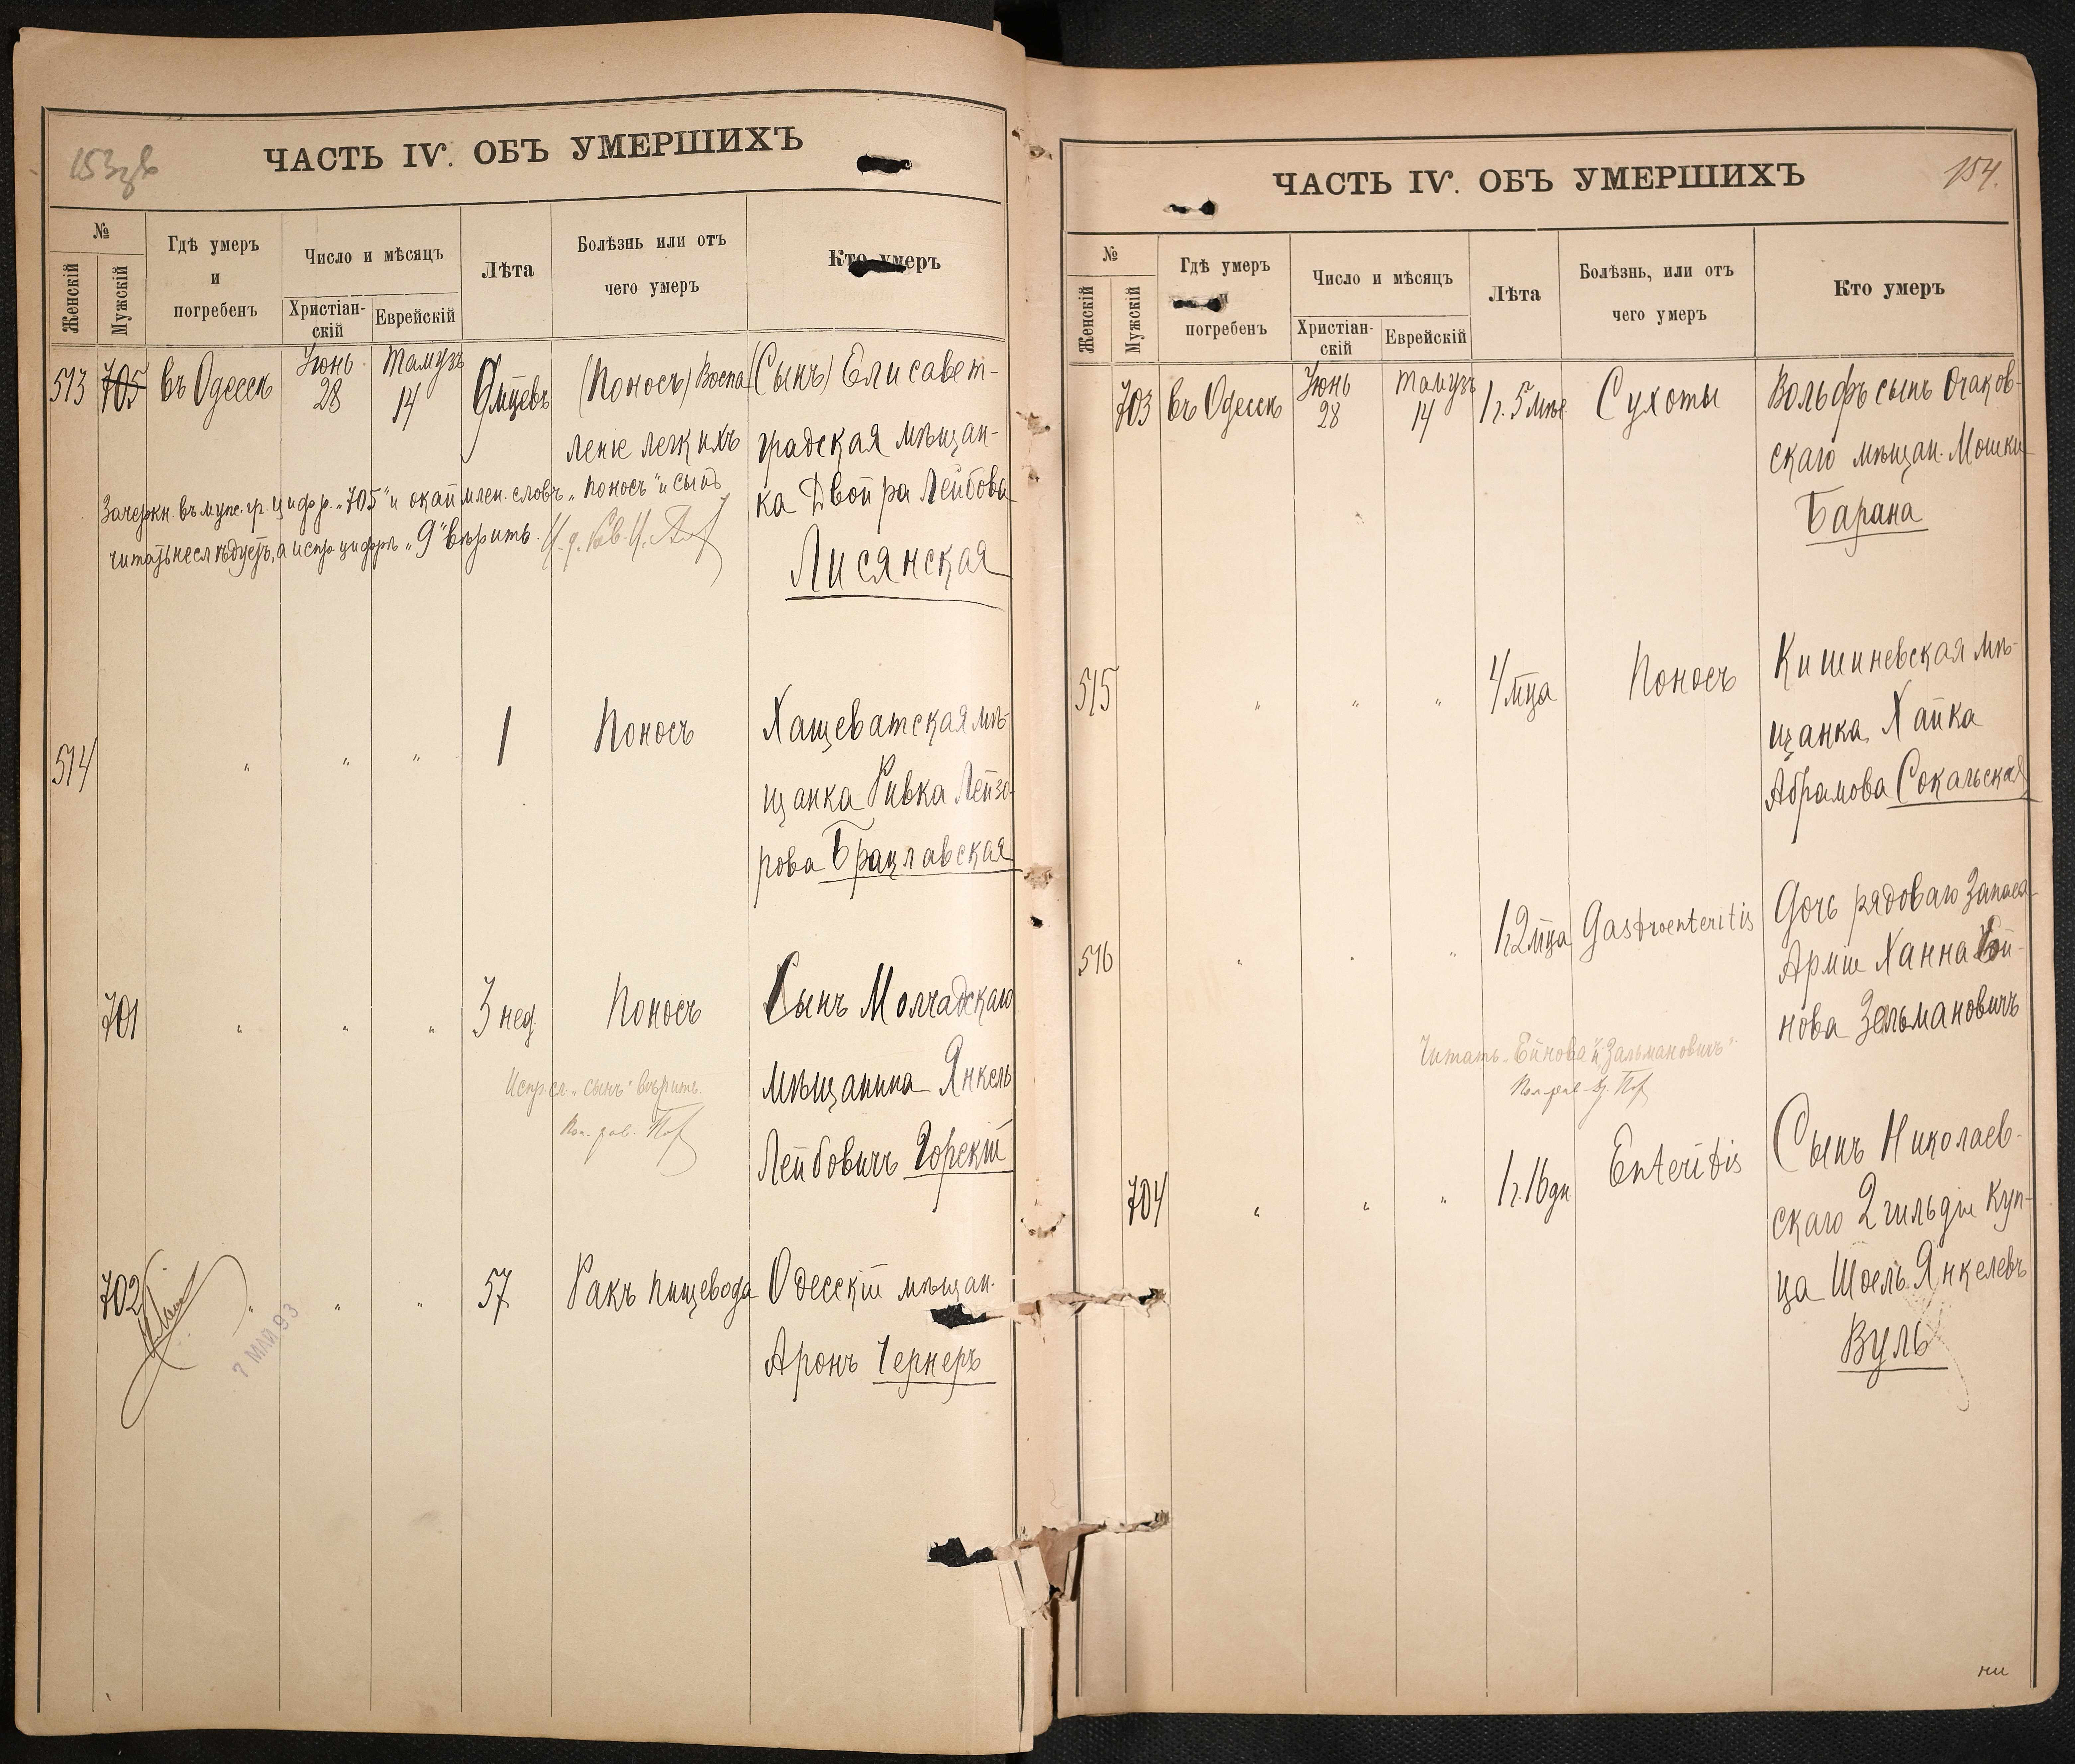 153 об
ЧАСТЬ IV. ОБЪ УМЕРШИХЪ
№
Женскій
Мужскій
Гдѣ умеръ
и
погребенъ
Число и мѣсяцъ
Христіан-
скій
Еврейскій
Лѣта
Болѣзнь или отъ
чего умеръ
Кто умеръ
513 705 въ Одессѣ Іюнь 28 Тамузъ 14 9 мцевъ (Поносъ) Воспа- (Сынъ) Елисавет-
леніе легкихъ градская мѣщан-
ка Двойра Лейбова
Лисянская
Зачеркн. въ муж. гр. цифр. „705“ и окаймлен. словъ „поносъ“ и сынъ
читать не слѣдуетъ, а испр. цифръ „9“ вѣрить.
514 „ „ „ 1 Поносъ Хащеватская мѣ-
щанка Ривка Лейзо-
рова Брацлавская
701 „ „ „ 3 нед. Поносъ Сынъ Молчадскаго
мѣщанина Янкель
Лейбовичъ Горскій
Испр. сл. „сынъ“ вѣрить.
702 „ „ „ 57 Ракъ пищевода Одесскій мѣщан.
Аронъ Чернеръ
7 МАЙ 93
154.
ЧАСТЬ IV. ОБЪ УМЕРШИХЪ
№
Женскій
Мужскій
Гдѣ умеръ
и
погребенъ
Число и мѣсяцъ
Христіан-
скій
Еврейскій
Лѣта
Болѣзнь, или отъ
чего умеръ
Кто умеръ
703 въ Одессѣ Іюнь 28 Тамузъ 14 1 г. 5 мце Сухоты Вольфъ сынъ Очаков-
скаго мѣщан. Мошки
Барана
515 „ „ „ 4 мца Поносъ Кишиневская мѣ-
щанка Хайка
Абрамова Сокальская
516 „ „ „ 1 г. 2 мца Gastroenteritis Дочь рядоваго Запаса
Арміи Ханна
нова Зельмановичъ
Читать „Ейнова“ и „Зальмановичъ“
704 „ „ „ 1 г. 16 дн. Enteritis Сынъ Николаев-
скаго 2 гильдіи куп-
ца Шоелъ Янкелевъ
Вуль